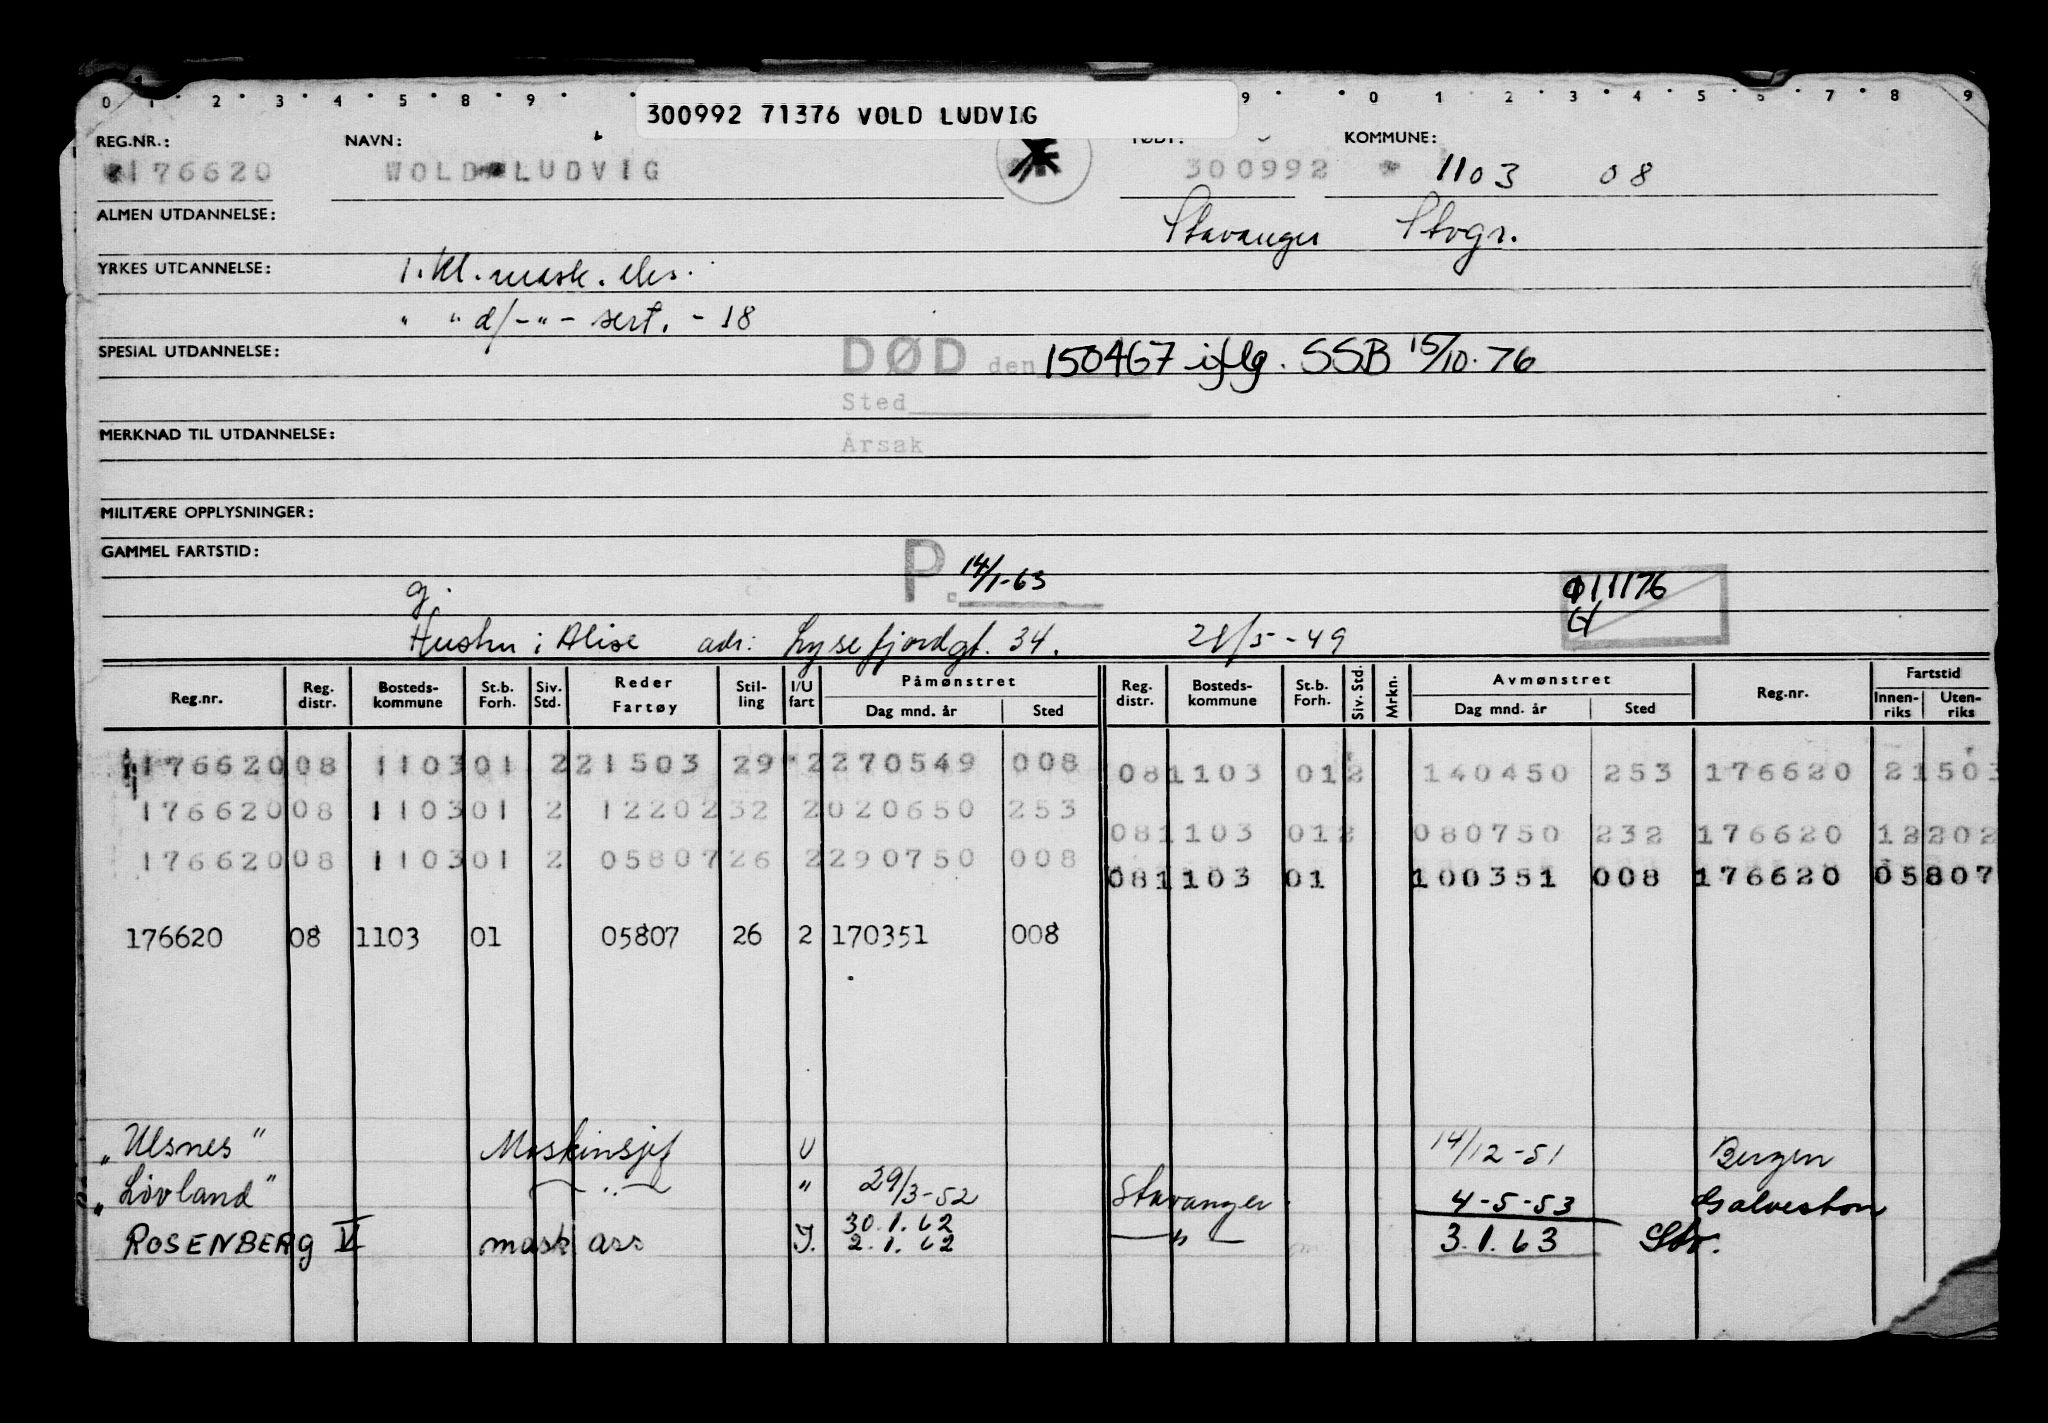 0 1 2 3 4 5 8 9 9 0 1 2 3 4 5 6 7 8 9
300992 71376 VOLD LUDVIG
REG.NR.: NAVN: FØDT: KOMMUNE:
176620 WOLD LUDVIG 300992 1103 08
ALMEN UTDANNELSE: Stavanger Stvgr.
YRKES UTDANNELSE: 1. kl. mask. eks.
" " d/-"- sert. - 18
SPESIAL UTDANNELSE: DØD den 150467 iflg. SSB 15/10.76
Sted
MERKNAD TIL UTDANNELSE: Årsak
MILITÆRE OPPLYSNINGER:
GAMMEL FARTSTID: P. 14/1-63
g. 011176
Hustru: Alise adr: Lysefjordgt. 34. 21/5-49
Reg.nr. Reg. distr. Bosteds-kommune St.b. Forh. Siv. Std. Reder Fartøy Stil-ling I/U fart Påmønstret Dag mnd. år Sted Reg. distr. Bosteds-kommune St.b. Forh. Siv. Std. Mrkn. Avmønstret Dag mnd. år Sted Reg.nr. Fartstid Innen-riks Uten-riks
176620 08 1103 01 2 21503 29 2 270549 008 08 1103 01 2 140450 253 176620 21503
176620 08 1103 01 2 12202 32 2 020650 253 08 1103 01 2 080750 232 176620 12202
176620 08 1103 01 2 05807 26 2 290750 008 08 1103 01 100351 008 176620 05807
176620 08 1103 01 05807 26 2 170351 008
"Ulsnes" Maskinsjef U 14/12-51 Bergen
"Lövland" -"- " 29/3-52 Stavanger 4-5-53 Galveston
30.1.62
ROSENBERG V mask ass I. 2.1.62 -"- 3.1.63 Stv.